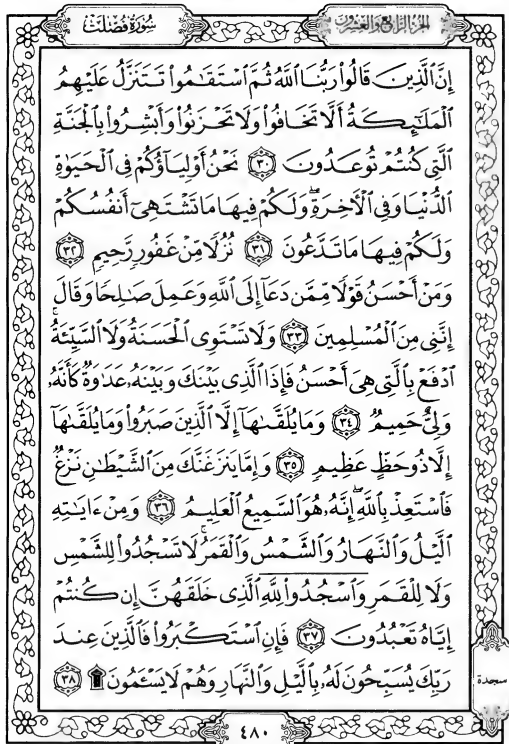 سُورَةُ فُصِّلَتْ
الجزءُ الرَّابِعُ وَالعِشْرُونَ
إِنَّ ٱلَّذِينَ قَالُوا۟ رَبُّنَا ٱللَّهُ ثُمَّ ٱسْتَقَٰمُوا۟ تَتَنَزَّلُ عَلَيْهِمُ
ٱلْمَلَٰٓئِكَةُ أَلَّا تَخَافُوا۟ وَلَا تَحْزَنُوا۟ وَأَبْشِرُوا۟ بِٱلْجَنَّةِ
ٱلَّتِى كُنتُمْ تُوعَدُونَ ٣٠ نَحْنُ أَوْلِيَآؤُكُمْ فِى ٱلْحَيَوٰةِ
ٱلدُّنْيَا وَفِى ٱلْءَاخِرَةِ ۖ وَلَكُمْ فِيهَا مَا تَشْتَهِىٓ أَنفُسُكُمْ
وَلَكُمْ فِيهَا مَا تَدَّعُونَ ٣١ نُزُلًا مِّنْ غَفُورٍ رَّحِيمٍ ٣٢
وَمَنْ أَحْسَنُ قَوْلًا مِّمَّن دَعَآ إِلَى ٱللَّهِ وَعَمِلَ صَٰلِحًا وَقَالَ
إِنَّنِى مِنَ ٱلْمُسْلِمِينَ ٣٣ وَلَا تَسْتَوِى ٱلْحَسَنَةُ وَلَا ٱلسَّيِّئَةُ ۚ
ٱدْفَعْ بِٱلَّتِى هِىَ أَحْسَنُ فَإِذَا ٱلَّذِى بَيْنَكَ وَبَيْنَهُۥ عَدَٰوَةٌ كَأَنَّهُۥ
وَلِىٌّ حَمِيمٌ ٣٤ وَمَا يُلَقَّىٰهَآ إِلَّا ٱلَّذِينَ صَبَرُوا۟ وَمَا يُلَقَّىٰهَآ
إِلَّا ذُو حَظٍّ عَظِيمٍ ٣٥ وَإِمَّا يَنزَغَنَّكَ مِنَ ٱلشَّيْطَٰنِ نَزْغٌ
فَٱسْتَعِذْ بِٱللَّهِ ۖ إِنَّهُۥ هُوَ ٱلسَّمِيعُ ٱلْعَلِيمُ ٣٦ وَمِنْ ءَايَٰتِهِ
ٱلَّيْلُ وَٱلنَّهَارُ وَٱلشَّمْسُ وَٱلْقَمَرُ ۚ لَا تَسْجُدُوا۟ لِلشَّمْسِ
وَلَا لِلْقَمَرِ وَٱسْجُدُوا۟ لِلَّهِ ٱلَّذِى خَلَقَهُنَّ إِن كُنتُمْ
إِيَّاهُ تَعْبُدُونَ ٣٧ فَإِنِ ٱسْتَكْبَرُوا۟ فَٱلَّذِينَ عِندَ
رَبِّكَ يُسَبِّحُونَ لَهُۥ بِٱلَّيْلِ وَٱلنَّهَارِ وَهُمْ لَا يَسْـَٔمُونَ ۩ ٣٨
سجدة
٤٨٠